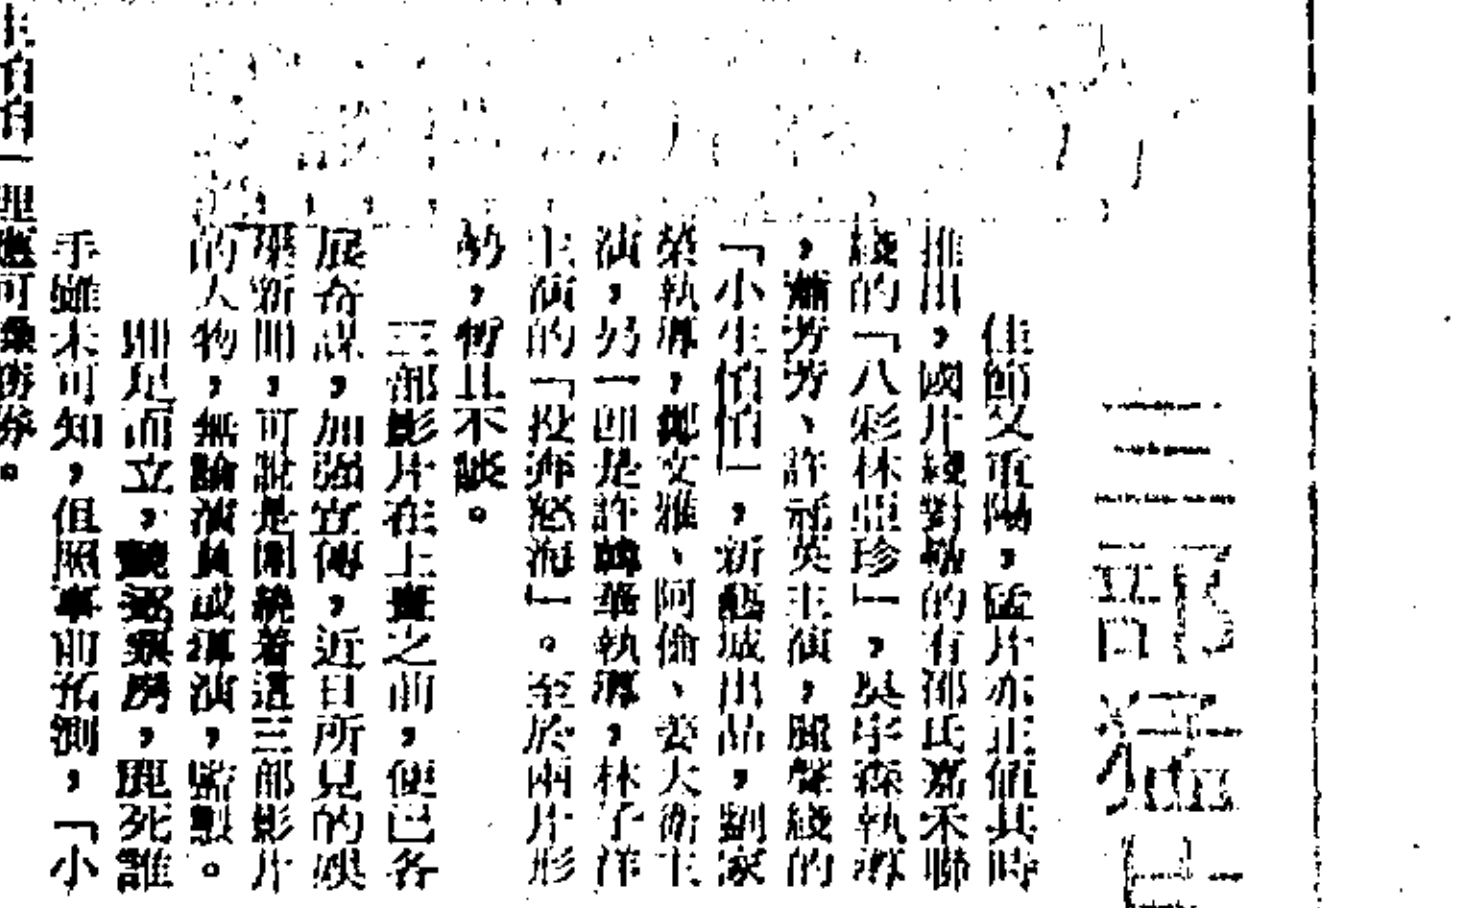 三部猛片
佳節又重陽，猛片亦正值其時
推出，國片綫對壘的有邵氏嘉禾聯
綫的「八彩林亞珍」，吳宇森執導
，蕭芳芳、許冠英主演，麗聲綫的
「小生怕怕」，新藝城出品，劉家
榮執導，鄭文雅、阿倫、姜大衛主
演，另一部是許鞍華執導，林子祥
主演的「投奔怒海」。至於兩片形
勢，暫且不談。
三部影片在上畫之前，便已各
展奇謀，加強宣傳，近日所見的娛
樂新聞，可說是圍繞着這三部影片
的人物，無論演員或導演，監製。
而立，票房，鹿死誰
手雖未可知，但照事前預測，「小
生怕怕」理應可操勝券。